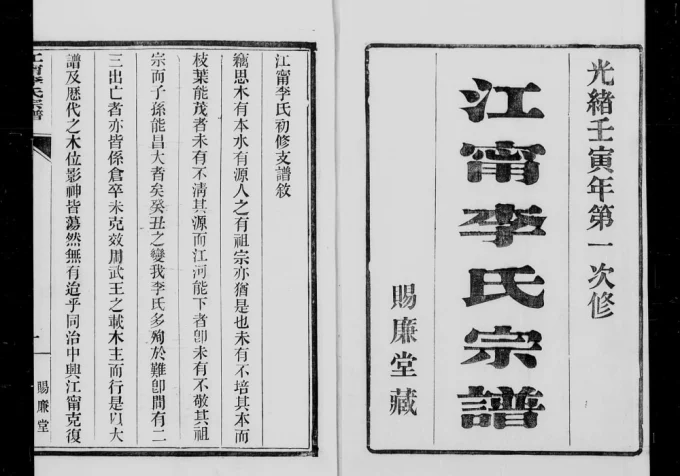 光緒壬寅年第一次修
江甯李氏宗譜
賜廉堂藏
江甯李氏初修支譜敘
竊思木有本水有源人之有祖宗亦猶是也未有不培其本而
枝葉能茂者未有不清其源而江河能下者卽未有不敬其祖
宗而子孫能昌大者矣癸丑之變我李氏多殉於難卽間有二
三出亡者亦皆係倉卒未克效周武王之載木主而行是以大
譜及歷代之木位影神皆蕩然無有迨乎同治中興江甯克復
江甯李氏宗譜
一
賜廉堂